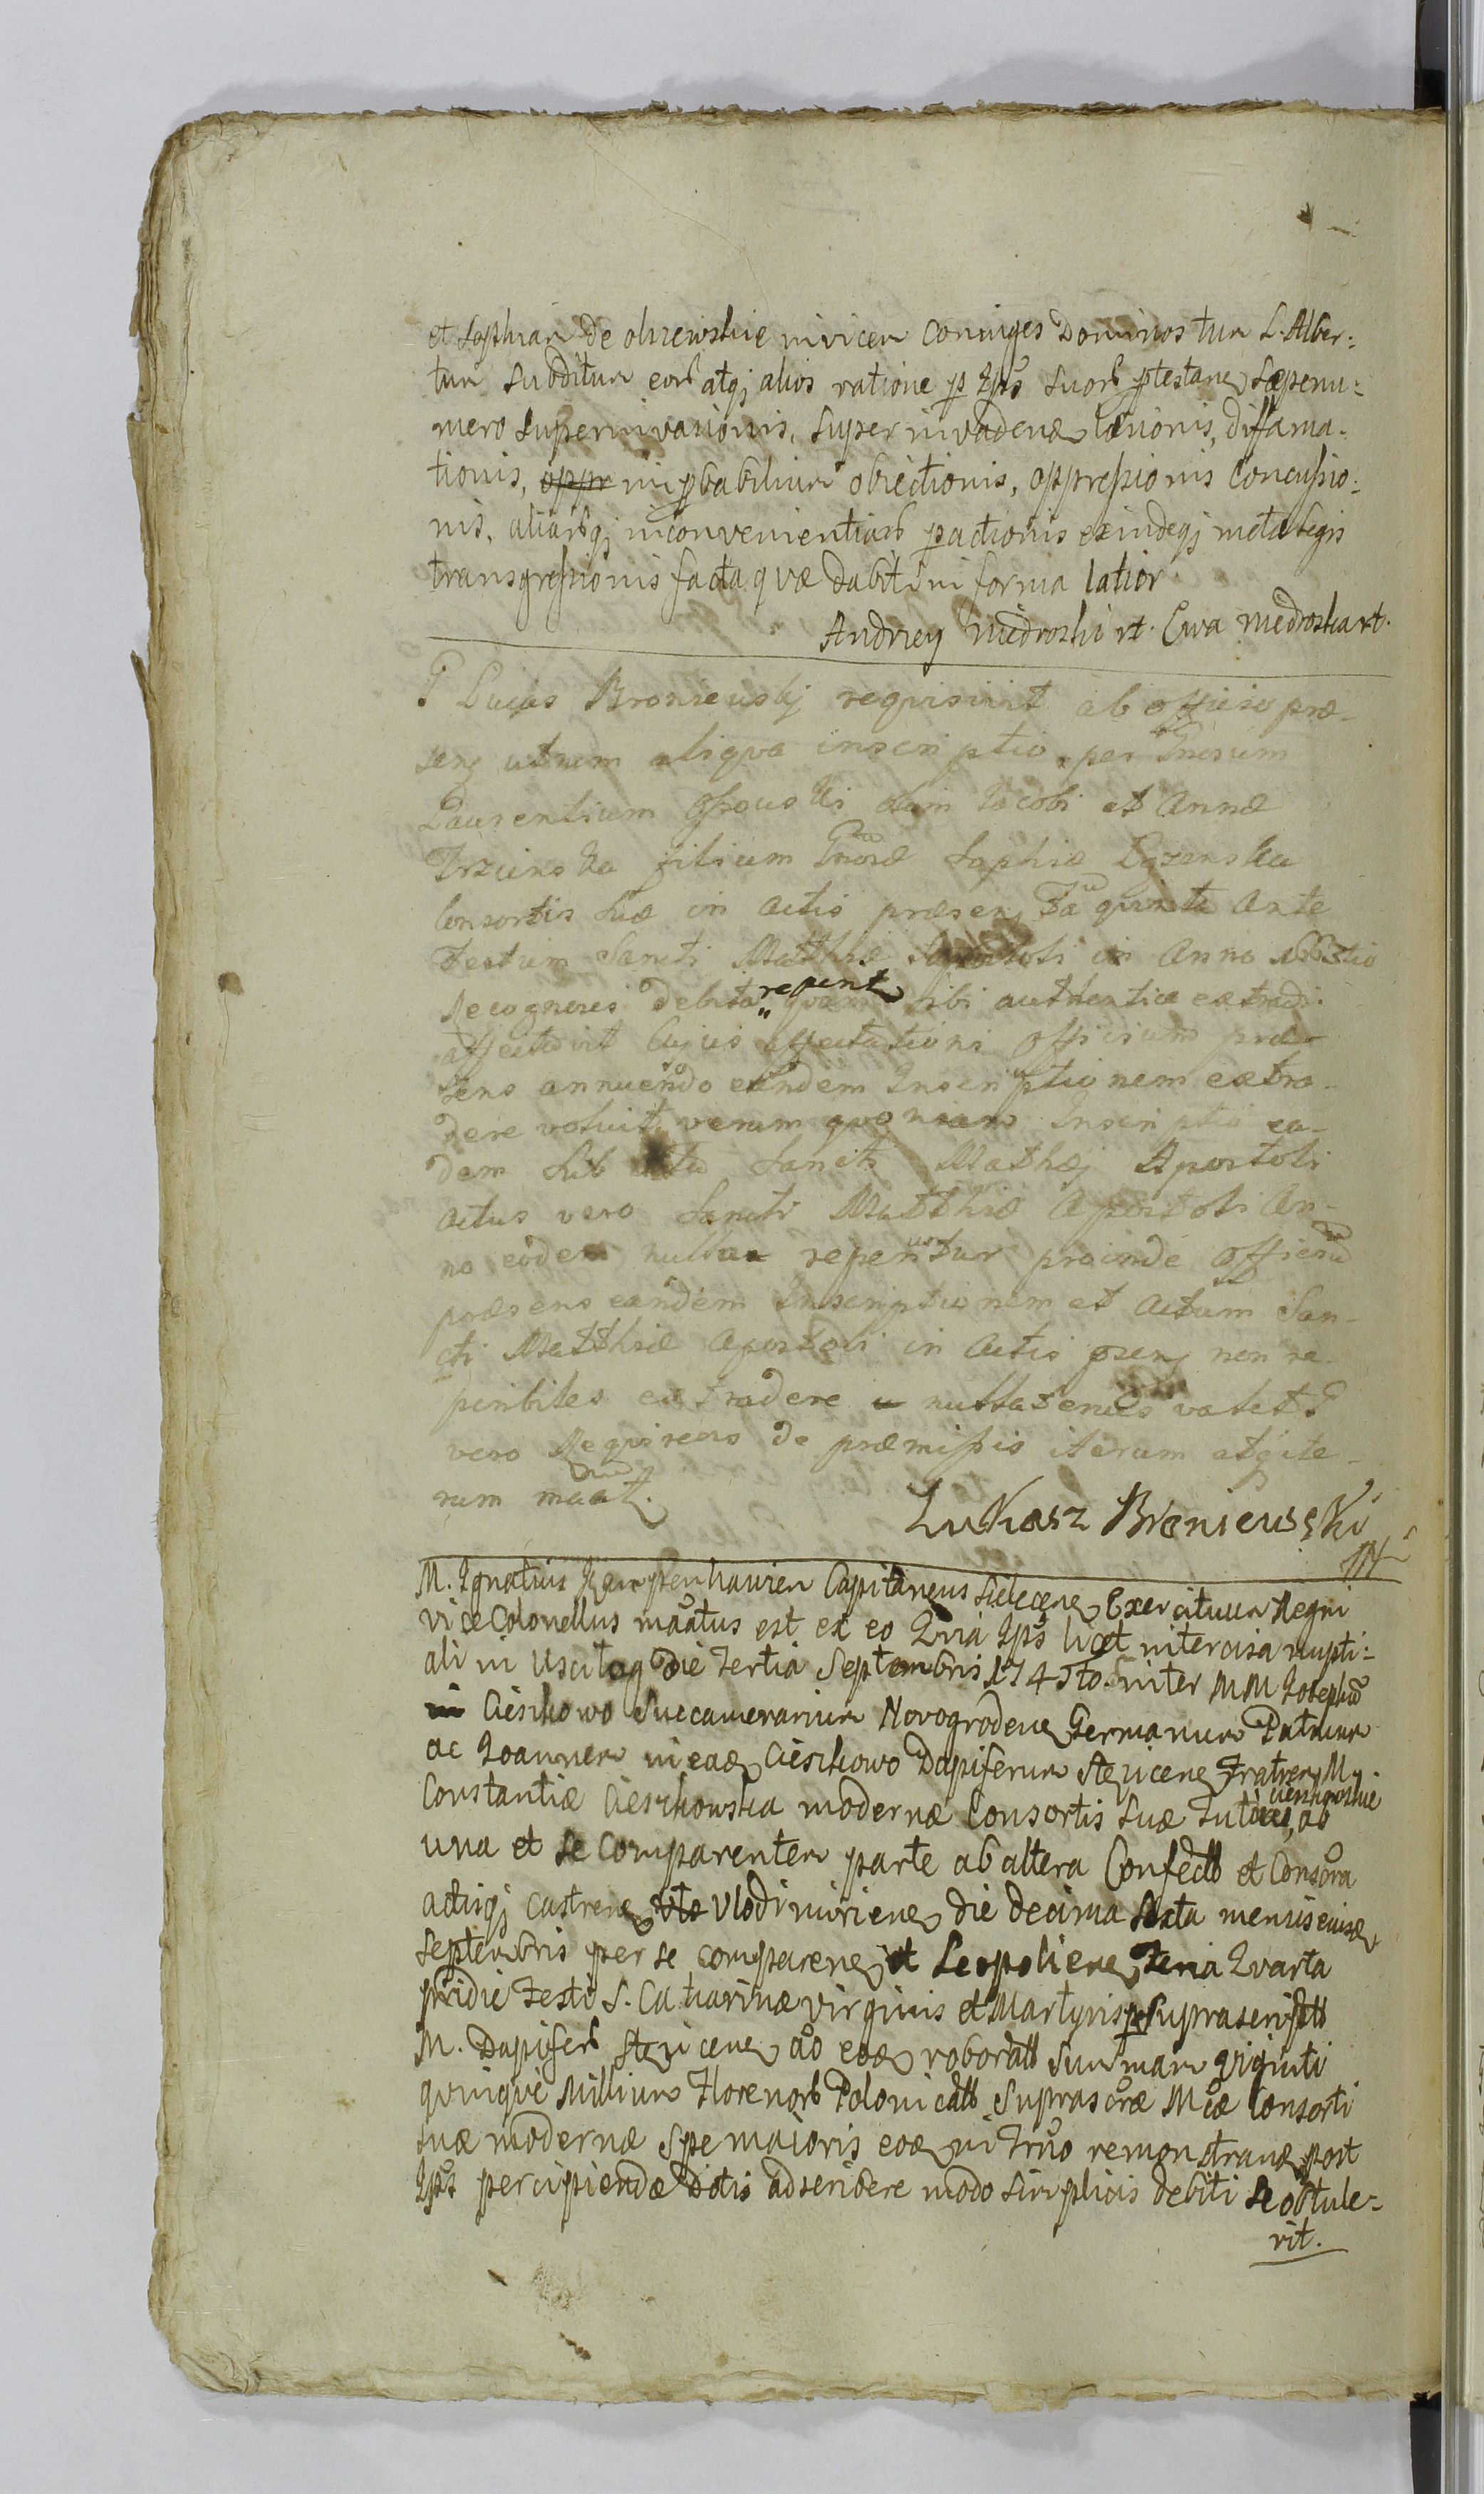 et Sophiam de olszewskie invicem coniuges Dominos tum L. Alber:
tum subditum eorb atqj alios ratione p Ips suorb ptestane sæpenu:
mero superinvasionis, super invadenæ læsionis, diffama-
tionis, oppr improbabilium obiectionis, oppressionis concussio:
nis, aliarbqj inconvenientiarb pactionis exindeqj meta legis
transgressionis facta quæ dabit in forma latior
Andrzey niedroski rt. Ewa niedroska rt.
G Lucas Broniewskj requisivit ab officio præ-
sene utrum aliqva inscriptio per Gnosum
Laurentium olim Iacobi et Annæ
filium Gnosæ Sophiæ
Consortis suæ in actis præsen Fa quinta ante
Festum Sancti Matthiæ Apostoli in Anno
Recogneres debita, reperit quam sibi authentice extradi
affectavit Cujus affectationi officium præ-
sens annuendo eandem Inscriptionem extra-
dere voluit verum qvoniam Inscriptio ea-
dem sub actu Sancti Mathæj Apostoli
actus vero Sancti Matthiæ Apostoli An-
no eodem nullus reperitur proinde officiu
præsens eandem Inscriptionem et actum San-
cti Matthiæ Apostoli in Actis præsen non re-
peribiles extradere nullatenus valet G
vero Requirens de præmissis iterum atq ite-
rum maat.
Lukasz Broniewski
M. Ignatius Kampenhauzen Capitaneus sielecene Exercituum Regni
vice Colonellus maatus est ex eo Qvia Ips licet intercisa nupti-
ali in Uscitag die tertia Septembris 1745to. inter MM Iosephu
in Cieszkowo Succamerarium Novogrodene Germanum Patruum
ac Ioannem in eadæ Cieszkowo Dapiferum Stezicene Fratrem M.
cieszkowskie
Constantiæ Cieszkowska modernæ Consortis suæ tutores, ab
una et se comparentem parte ab altera Confectb et Consora
actuqj castrene Vlodimiriene die decima sexta mensis eiusæ
Septembris per se comparene et Leopoliene Feria Qvarta
pridie Festi S. Catharinæ virginis et Martyris p suprascriptb
M. Dapiferb Stezicene ao eoæ roboratb Summam viginti
qvinqve Millium Florenorb Polonicalb Suprascræ Mcæ Consorti
suæ modernæ Spe maioris eoæ in Fruo remonstranæ post
Ips percipiendæ dotis adscribere modo simplicis debiti se obtule-
rit.